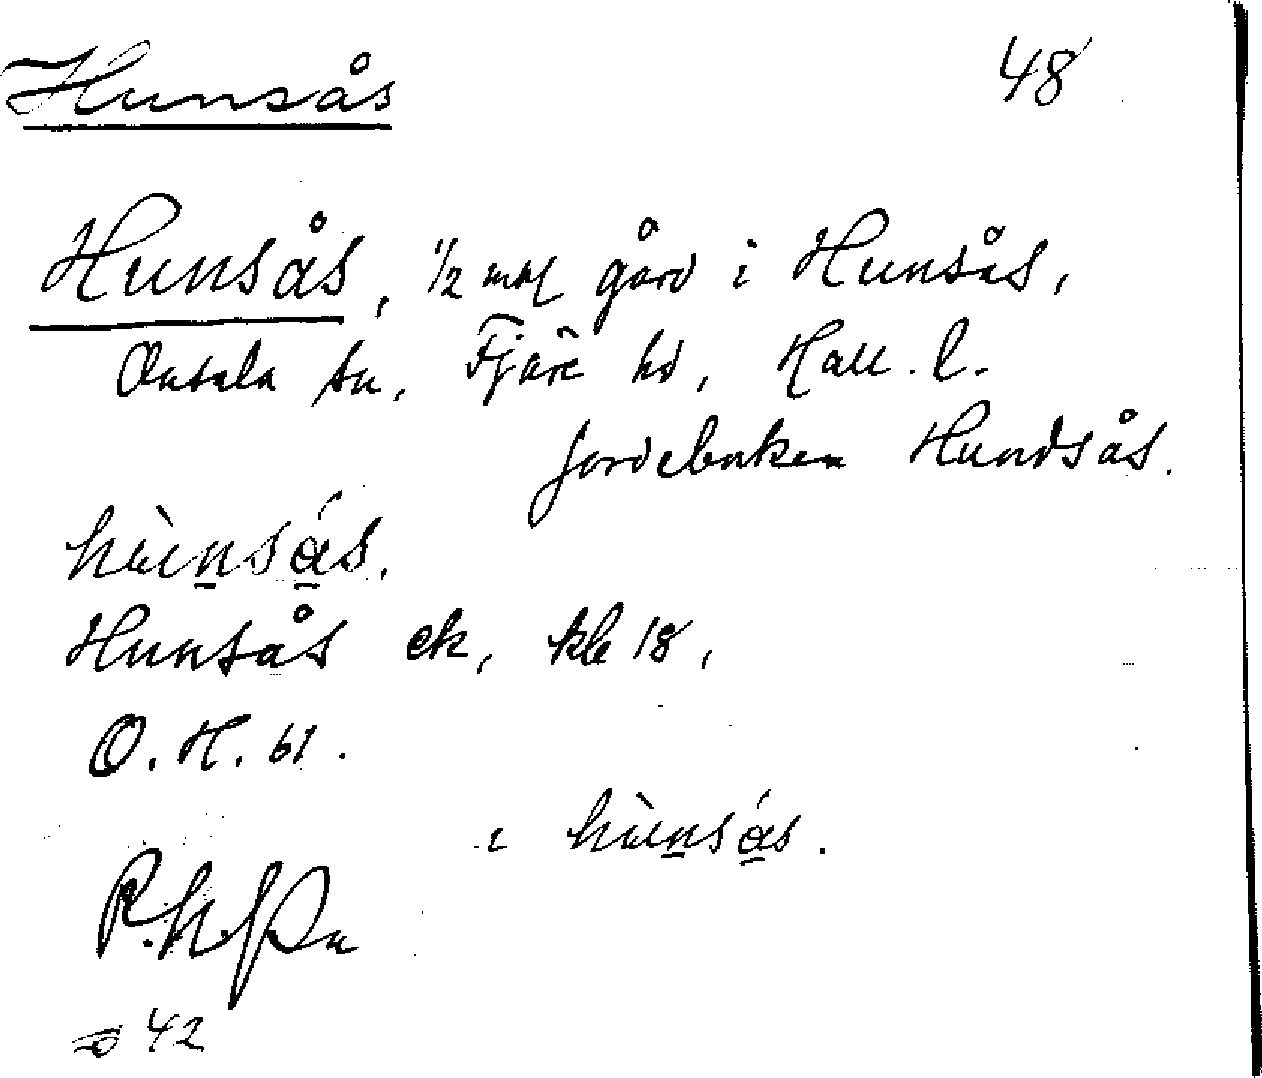 Hunsås 48
Hunsås, 1/2 mtl gård i Hunsås,
Onsala sn, Fjäre hd, Hall. l.
Jordeboken Hundsås.
hùnsás.
Hunsås ek, kbl 18,
O. H. 61.
i hùnsás.
42